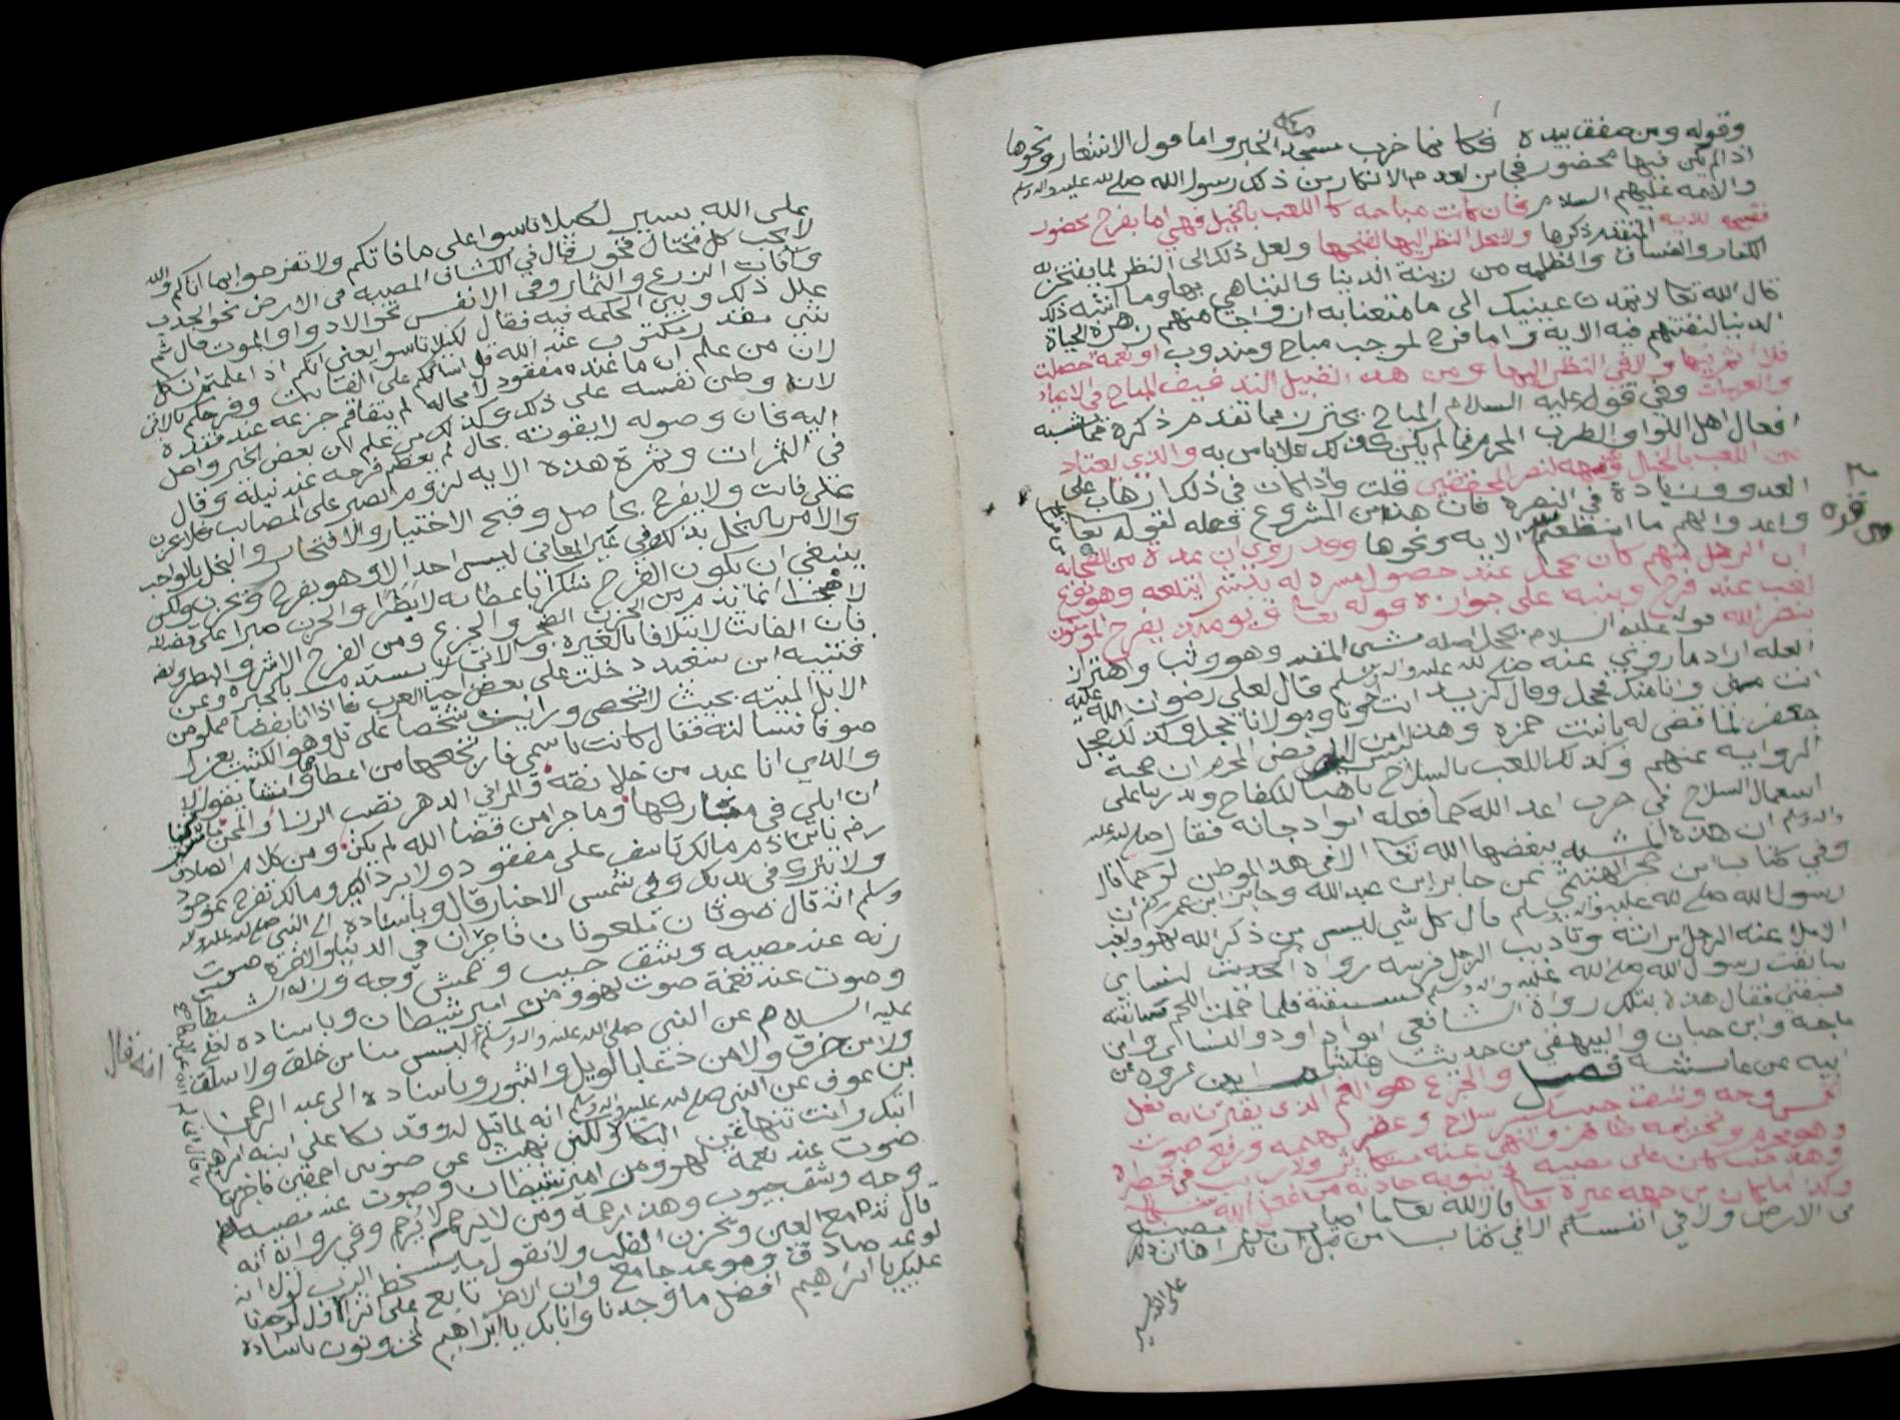 وقوله ومن صفق بيده فكانما خرب مسجد الخبر واما قول الاشعار ونحوها
اذ لم يكن فيها محضور فجائز لعدم الانكار من ذلك رسول الله صلى الله عليه واله وسلم
والايمه عليهم السلام فان كانت مباحه كاللعب بالخيل فهي اما بفرح محضور
فقبيحه للايه المتقدم ذكرها ولا يحل النظر اليها لقبحها ولعل ذلك الى النظر لما يفتخر به
الكفار والفساق والظلمه من زينة الدنيا والتباهي بها وما اشبه ذلك
قال الله تعالى لا تمدن عينيك الى ما متعنا به ازواجا منهم زهرة الحياة
الدنيا لنفتنهم فيه الايه واما فرح لموجب مباح ومندوب او نعمة حصلت
فلا اثم فيها ولا في النظر اليها ومن هذا القبيل الندفيف المباح في الاعياد
والعرسات وفي قوله عليه السلام المباح يحترز مما تقدم ذكره فما شبه
افعال اهل اللهو والطرب المحرم فما لم يكن كذلك فلا باس به والذي يعتاد
من اللعب بالخيل
العدو وزيادة في النصره فان هذا من المشروع فعله لقوله تعالى
واعدوا لهم ما استطعتم الايه ونحوها وقد روي ان عدة من الصحابه
ان الرجل منهم كان يحجل عند حصول مسره له
لعب عند فرح وينبه على جوازه قوله تعالى ويومئذ يفرح المومنون
بنصر الله قوله عليه السلام يحجل اصله مشي المقيد وهو وثب واهتزاز
لعله اراد ما روي عنه صلى الله عليه واله وسلم قال لعلي رضوان الله عليه
انت مني وانا منك فحجل وقال لزيد انت اخونا ومولانا فحجل وكذلك حجل
جعفر لما قضى له بابنت حمزه وهذا ليس من الرقص المحرم ان صحة
الروايه عنهم وكذلك اللعب بالسلاح تاهبا للكفاح وتدربا على
استعمال السلاح في حرب اعدا الله كما فعله ابو دجانه فقال صلى الله عليه
واله وسلم ان هذه المشيه يبغضها الله تعالى الا في هذا الموطن او كما قال
وفي كتاب ابن حجر الهيتمي عن جابر ابن عبد الله وجابر ابن عمير ان
رسول الله صلى الله عليه واله وسلم قال كل شي ليس من ذكر الله لهو ولعب
الا ملاعبة الرجل مراته وتاديب الرجل فرسه رواه الحديث لنساي
سابقت رسول الله صلى الله عليه واله وسلم فسبقته فلما حملت اللحم سابقته
فسبقني فقال هذه بتلك رواه الشافعي ابو داود والنساي وابن
ماجه وابن حبان والبيهقي من حديث هشام ابن عروه عن
ابيه عن عايشه فصل والجزع هو الغم الذي يقترن به فعل
خمس وجه وشق جيب وكسر سلاح وعقر بهيمه ورفع صوت
وهو محرم وتحريمه ظاهر والنهي عنه متكاثر ولا ريب في حظره
وهذا متى كان على مصيبه
وكذا ما كان من جهه غيره تعالى قال الله تعالى ما اصاب من مصيبة
في الارض ولا في انفسكم الا في كتاب من قبل ان نبراها ان ذلك
على الله يسير
على الله يسير لكيلا تاسوا على ما فاتكم ولا تفرحوا بما اتاكم والله
لا يحب كل مختال فخور قال في الكشاف المصيبه في الارض نحو الجدب
وافات الزرع والثمار وفي الانفس نحو الادوا والموت قال ثم
علل ذلك وبين الحكمه فيه فقال لكيلا تاسوا يعني انكم اذا علمتم ان كل
شي مقدر مكتوب عند الله قل اساكم على الفايت وفرحكم بالاتي
لان من علم ان ما عنده مفقود لا محاله لم يتفاقم جزعه عند فقده
لانه وطن نفسه على ذلك وكذلك من علم ان بعض الخير واصل
اليه فان وصوله لا يفوته بحال لم يعظم فرحه عند نيله وقال
في الثمرات وثمرة هذه الايه لزوم الصبر على المصايب فلا يحزن
على فايت ولا يفرح بحاصل وقبح الاختيار والافتخار والبخل بالواجب
والامر بالبخل بذلك وفي غير المعاني ليس احد الا وهو يفرح ويحزن ولكن
ينبغي ان يكون الفرح شكرا بعطايه لا بطرا والحزن صبرا على قضايه
لا ضجرا انما يذم من الحزن الضجر والجزع ومن الفرح الاشر والبطر
فان الفايت لا يتلافا بالعبره والاتي لا يستدام بالحبره وعن
قتيبه ابن سعيد دخلت على بعض احيا العرب فاذا انا بفضا مملو من
الابل الميته بحيث لا تحصى ورايت شخصا على تل وهو الكثيب يغزل
صوفا فسالته فقال كانت باسمي فارتجعها من اعطاها وانشا يقول
والذي انا عبد من خلايقه والمرا في الدهر نصب الرزا والمحن
ان ابلي في مباركها وما جرا من قضا الله لم يكن ومن كلام الصادق
رضه يابن ادم مالك تاسف على مفقود ولا يرد اليك ومالك تفرح بموجود
ولا يترك في يديك وفي شمس الاخبار قال وباسناده الى النبي صلى الله عليه واله
وسلم انه قال صوتان ملعونان فاجران في الدنيا والاخره صوت
رنه عند مصيبه وشق جيب وخمش وجه ورنة الشيطان
وصوت عند نعمة صوت لهو ومزامير شيطان وباسناده
عليه السلام عن النبي صلى الله عليه واله وسلم ليس منا من حلق ولا سلق
ولا من خرق ولا من دعا بالويل والثبور وباسناده الى عبد الرحمن
بن عوف عن النبي صلى الله عليه واله وسلم انه لما قيل له وقد بكا على ابنه ابراهيم
اتبك وانت تنها عن البكا ولكن نهيت عن صوتين احمقين فاجرين
صوت عند نعمة لهو ومزامير شيطان وصوت عند مصيبه لطم
وجه وشق جيوب وهذا رحمة ومن لا يرحم لا يرحم وفي رواية انه
قال تدمع العين ويحزن القلب ولا نقول ما يسخط الرب لولا انه
لوعد صادق وموعد جامع وان الاخر تابع على اثر الاول لوجدنا
عليك يا ابراهيم افضل ما وجدنا وانا بك يا ابراهيم لمحزونون باسناده